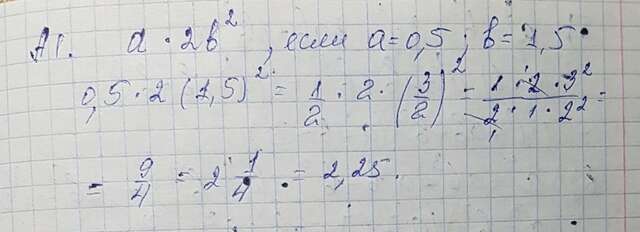 А1. a · 2b², если a=0,5; b=1,5
0,5 · 2 (1,5)² = 1/2 · 2 · (3/2)² = (1 · 2 · 3²)/(2 · 1 · 2²) =
= 9/4 = 2 1/4 = 2,25.